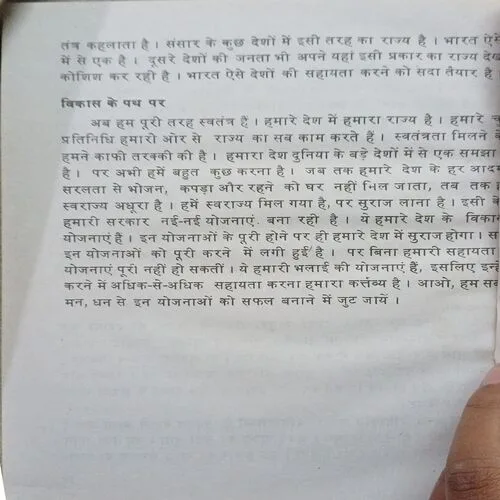 तंत्र कहलाता है । संसार के कुछ देशों में इसी तरह का राज्य है । भारत ऐसे
में से एक है । दूसरे देशों की जनता भी अपने यहां इसी प्रकार का राज्य
कोशिश कर रही है । भारत ऐसे देशों की सहायता करने को सदा तैयार है ।
विकास के पथ पर
अब हम पूरी तरह स्वतंत्र हैं । हमारे देश में हमारा राज्य है । हमारे
प्रतिनिधि हमारी ओर से राज्य का सब काम करते हैं । स्वतंत्रता मिलने
हमने काफी तरक्की की है । हमारा देश दुनिया के बड़े देशों में से एक समझा
है । पर अभी हमें बहुत कुछ करना है । जब तक हमारे देश के हर
सरलता से भोजन, कपड़ा और रहने को घर नहीं मिल जाता, तब तक
स्वराज्य अधूरा है । हमें स्वराज्य मिल गया है, पर सुराज लाना है । इसी
हमारी सरकार नई-नई योजनाएं. बना रही है । ये हमारे देश के
योजनाएं हैं । इन योजनाओं के पूरी होने पर ही हमारे देश में सुराज होगा ।
इन योजनाओं को पूरी करने में लगी हुई है । पर बिना हमारी सहायता
योजनाएं पूरी नहीं हो सकतीं । ये हमारी भलाई की योजनाएं हैं, इसलिए
करने में अधिक-से-अधिक सहायता करना हमारा कर्त्तव्य है । आओ, हम
मन, धन से इन योजनाओं को सफल बनाने में जुट जायें ।